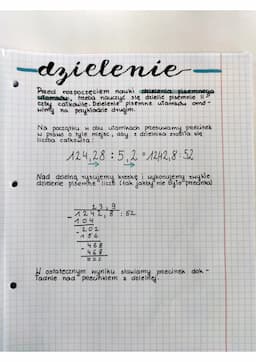 dzielenie
Przed rozpoczęciem nauki dzielenia pisemnego
ułamków, trzeba nauczyć się dzielić pisemnie li-
czby całkowite. Dzielenie pisemne ułamków omó-
wimy na przykładzie drugim.
Na początku w obu ułamkach przesuwamy przecinek
w prawo o tyle miejsc, aby z dzielnika zrobiła się
liczba całkowita:
124,28 : 5,2 = 1242,8 : 52
Nad dzielną rysujemy kreskę i wykonujemy zwykłe
dzielenie pisemne liczb (tak jakby nie było przecinka)
23,9
1242,8 : 52
- 104
- 202
156
- 468
468
000
W ostatecznym wyniku stawiamy przecinek dok-
ładnie nad przecinkiem z dzielnej.